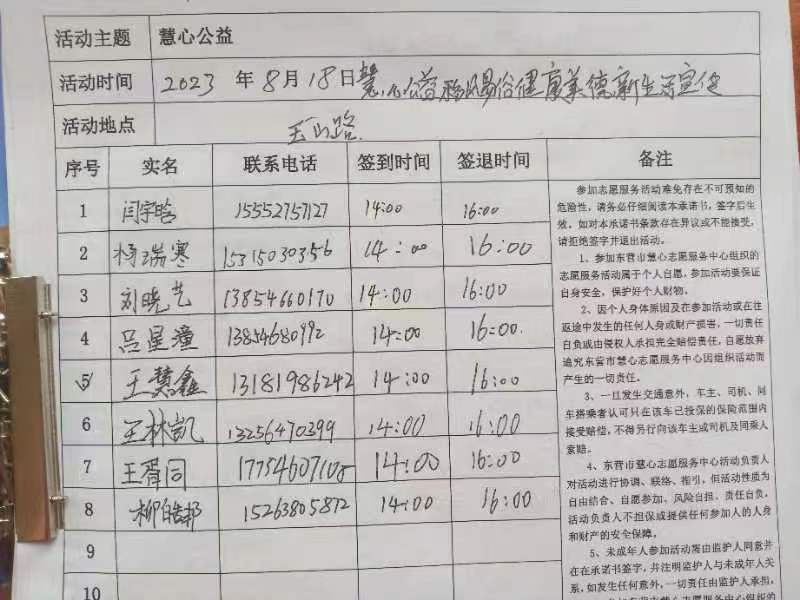 活动主题 慧心公益
活动时间 2023 年 8 月 18 日 慧心公益移风易俗健康美德新生活宣传
活动地点 玉山路
序号 实名 联系电话 签到时间 签退时间 备注
1 闫宇晗 15552757127 14:00 16:00
2 杨瑞寒 15315030356 14:00 16:00
3 刘晓艺 13854660170 14:00 16:00
4 吕星潼 13854680992 14:00 16:00
5 王慧鑫 13181986242 14:00 16:00
6 王林凯 13256470399 14:00 16:00
7 王胥同 17754607108 14:00 16:00
8 柳皓邦 15263805872 14:00 16:00
9
10
参加志愿服务活动难免存在不可预知的
危险性,请务必仔细阅读本承诺书,签字后生
效,如对本承诺书条款存在异议或不能接受,
请拒绝签字并退出活动。
1、参加东营市慧心志愿服务中心组织的
志愿服务活动属于个人自愿,参加活动要保证
自身安全,保护好个人财物。
2、因个人身体原因及在参加活动或在往
返途中发生的任何人身或财产损害,一切责任
自负或由侵权人承担完全赔偿责任,自愿放弃
追究东营市慧心志愿服务中心因组织活动而
产生的一切责任。
3、一旦发生交通意外,车主、司机、同
车搭乘者认可只在该车已投保的保险范围内
接受赔偿,不得另行向该车主或司机及同乘人
索赔。
4、东营市慧心志愿服务中心活动负责人
对活动进行协调、联络、指引,但活动性质为
自由结合、自愿参加、风险自担、责任自负,
活动负责人不担保或提供任何参加人的人身
和财产的安全保障。
5、未成年人参加活动需由监护人同意并
在在承诺书签字,并注明监护人与未成年人关
系,如发生任何意外,一切责任由监护人承担,
慧心志愿服务中心组织的